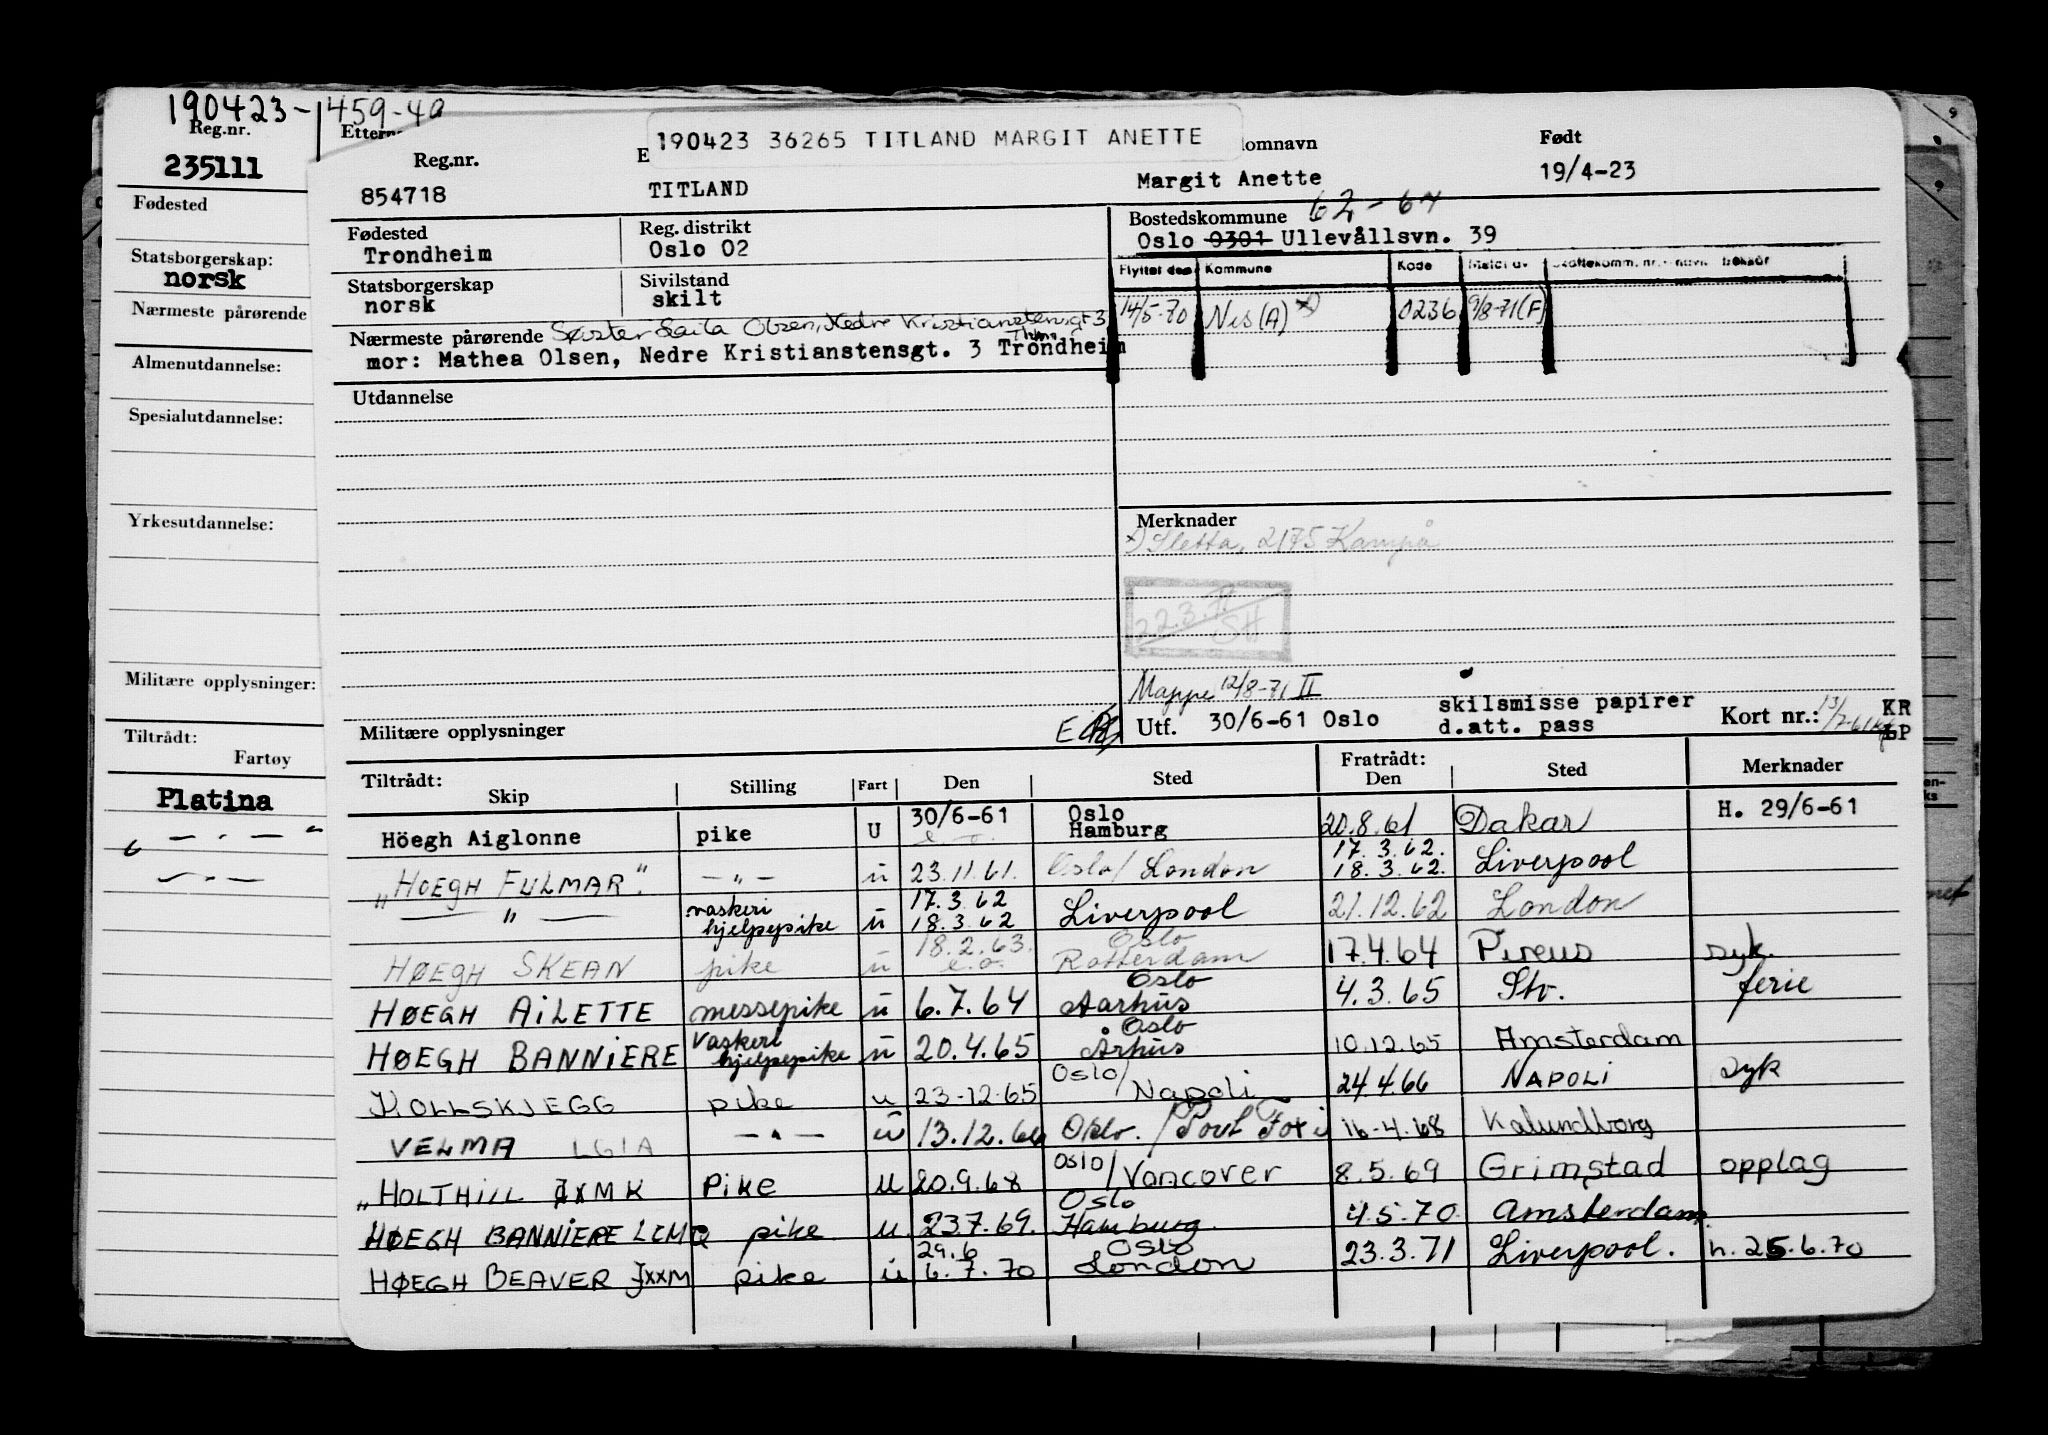 190423-1459-49
Reg.nr.
235111
Fødested
Statsborgerskap:
norsk
Nærmeste pårørende
Almenutdannelse:
Spesialutdannelse:
Yrkesutdannelse:
Militære opplysninger:
Tiltrådt:
Fartøy
Platina
190423 36265 TITLAND MARGIT ANETTE
Reg.nr. Født
854718 TITLAND Margit Anette 19/4-23
Fødested Reg. distrikt Bostedskommune 62-64
Trondheim Oslo 02 Oslo 0301 Ullevållsvn. 39
Statsborgerskap Sivilstand Flyttet den Kommune Kode
norsk skilt 14/5-70 Nes (A) x) 0236 9/8-71 (F)
Nærmeste pårørende Søster Laila Olsen, Nedre Kristianstensgt 3
Thhm
mor: Mathea Olsen, Nedre Kristianstensgt. 3 Trondheim
Utdannelse
Merknader
x) Sletta, 2175 Kampå
22.3.71
SH
Mappe 12/8-71 II
Militære opplysninger Utf. 30/6-61 Oslo skilsmisse papirer
d.att. pass Kort nr.: KR
LP
Tiltrådt: Fratrådt:
Skip Stilling Fart Den Sted Den Sted Merknader
Höegh Aiglonne pike U 30/6-61 Oslo Hamburg 20.8.61 Dakar H. 29/6-61
"HOEGH FULMAR" — " — u 23.11.61. Oslo/London 17.3.62. 18.3.62. Liverpool
— " — vaskeri hjelpepike u 17.3.62 18.3.62 Liverpool 21.12.62 London
HØEGH SKEAN pike u 18.2.63. e.o. Oslo Rotterdam 17.4.64 Pireus syk.
HØEGH AILETTE messepike u 6.7.64 Oslo Aarhus 4.3.65 Stv. ferie
HØEGH BANNIERE Vaskeri hjelpepike u 20.4.65 Oslo Århus 10.12.65 Amsterdam
KOLLSKJEGG pike u 23-12-65 Oslo/Napoli 24.4.66 NAPOLI Syk
VELMA LGIA — " — u 13.12.66 Oslo. / Port 16-4.68 Kalundborg
"HOLTHILL JXMK Pike u 20.9.68 Oslo/Vancover 8.5.69 Grimstad opplag
HØEGH BANNIERE LCMQ pike u. 23.7.69. Oslo Hamburg. 4.5.70 Amsterdam.
HØEGH BEAVER JXXM pike u 29.6 6.7.70 Oslo London 23.3.71 Liverpool. h. 25.6.70